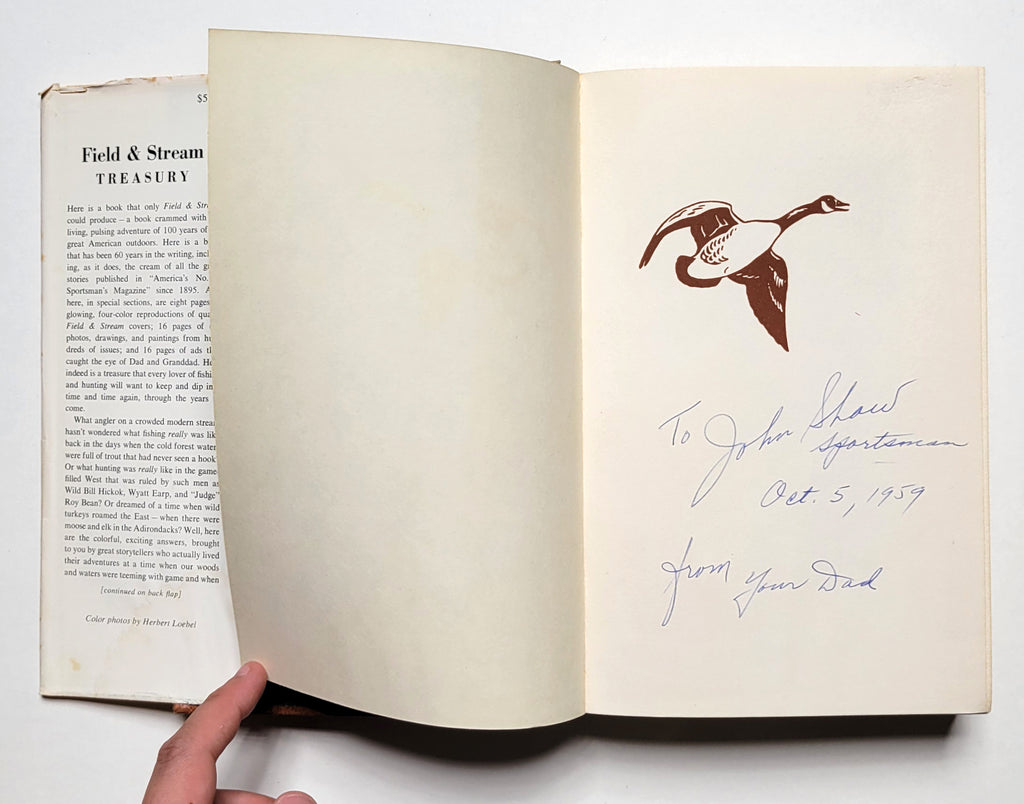 $5
Field & Stream
TREASURY
Here is a book that only Field &
could produce – a book crammed with
living, pulsing adventure of 100 years of
great American outdoors. Here is a
that has been 60 years in the writing,
ing, as it does, the cream of all the
stories published in "America's No.
Sportsman's Magazine" since 1895.
here, in special sections, are eight pages
glowing, four-color reproductions of
Field & Stream covers; 16 pages of
photos, drawings, and paintings from
dreds of issues; and 16 pages of ads
caught the eye of Dad and Granddad.
indeed is a treasure that every lover of
and hunting will want to keep and dip in
time and time again, through the years
come.
What angler on a crowded modern
hasn't wondered what fishing really was
back in the days when the cold forest water
were full of trout that had never seen a hook
Or what hunting was really like in the game-
filled West that was ruled by such men as
Wild Bill Hickok, Wyatt Earp, and "Judge"
Roy Bean? Or dreamed of a time when wild
turkeys roamed the East – when there were
moose and elk in the Adirondacks? Well, here
are the colorful, exciting answers, brought
to you by great storytellers who actually lived
their adventures at a time when our woods
and waters were teeming with game and when
[continued on back flap]
Color photos by Herbert Loebel
To John Shaw
Sportsman
Oct. 5, 1959
from Your Dad